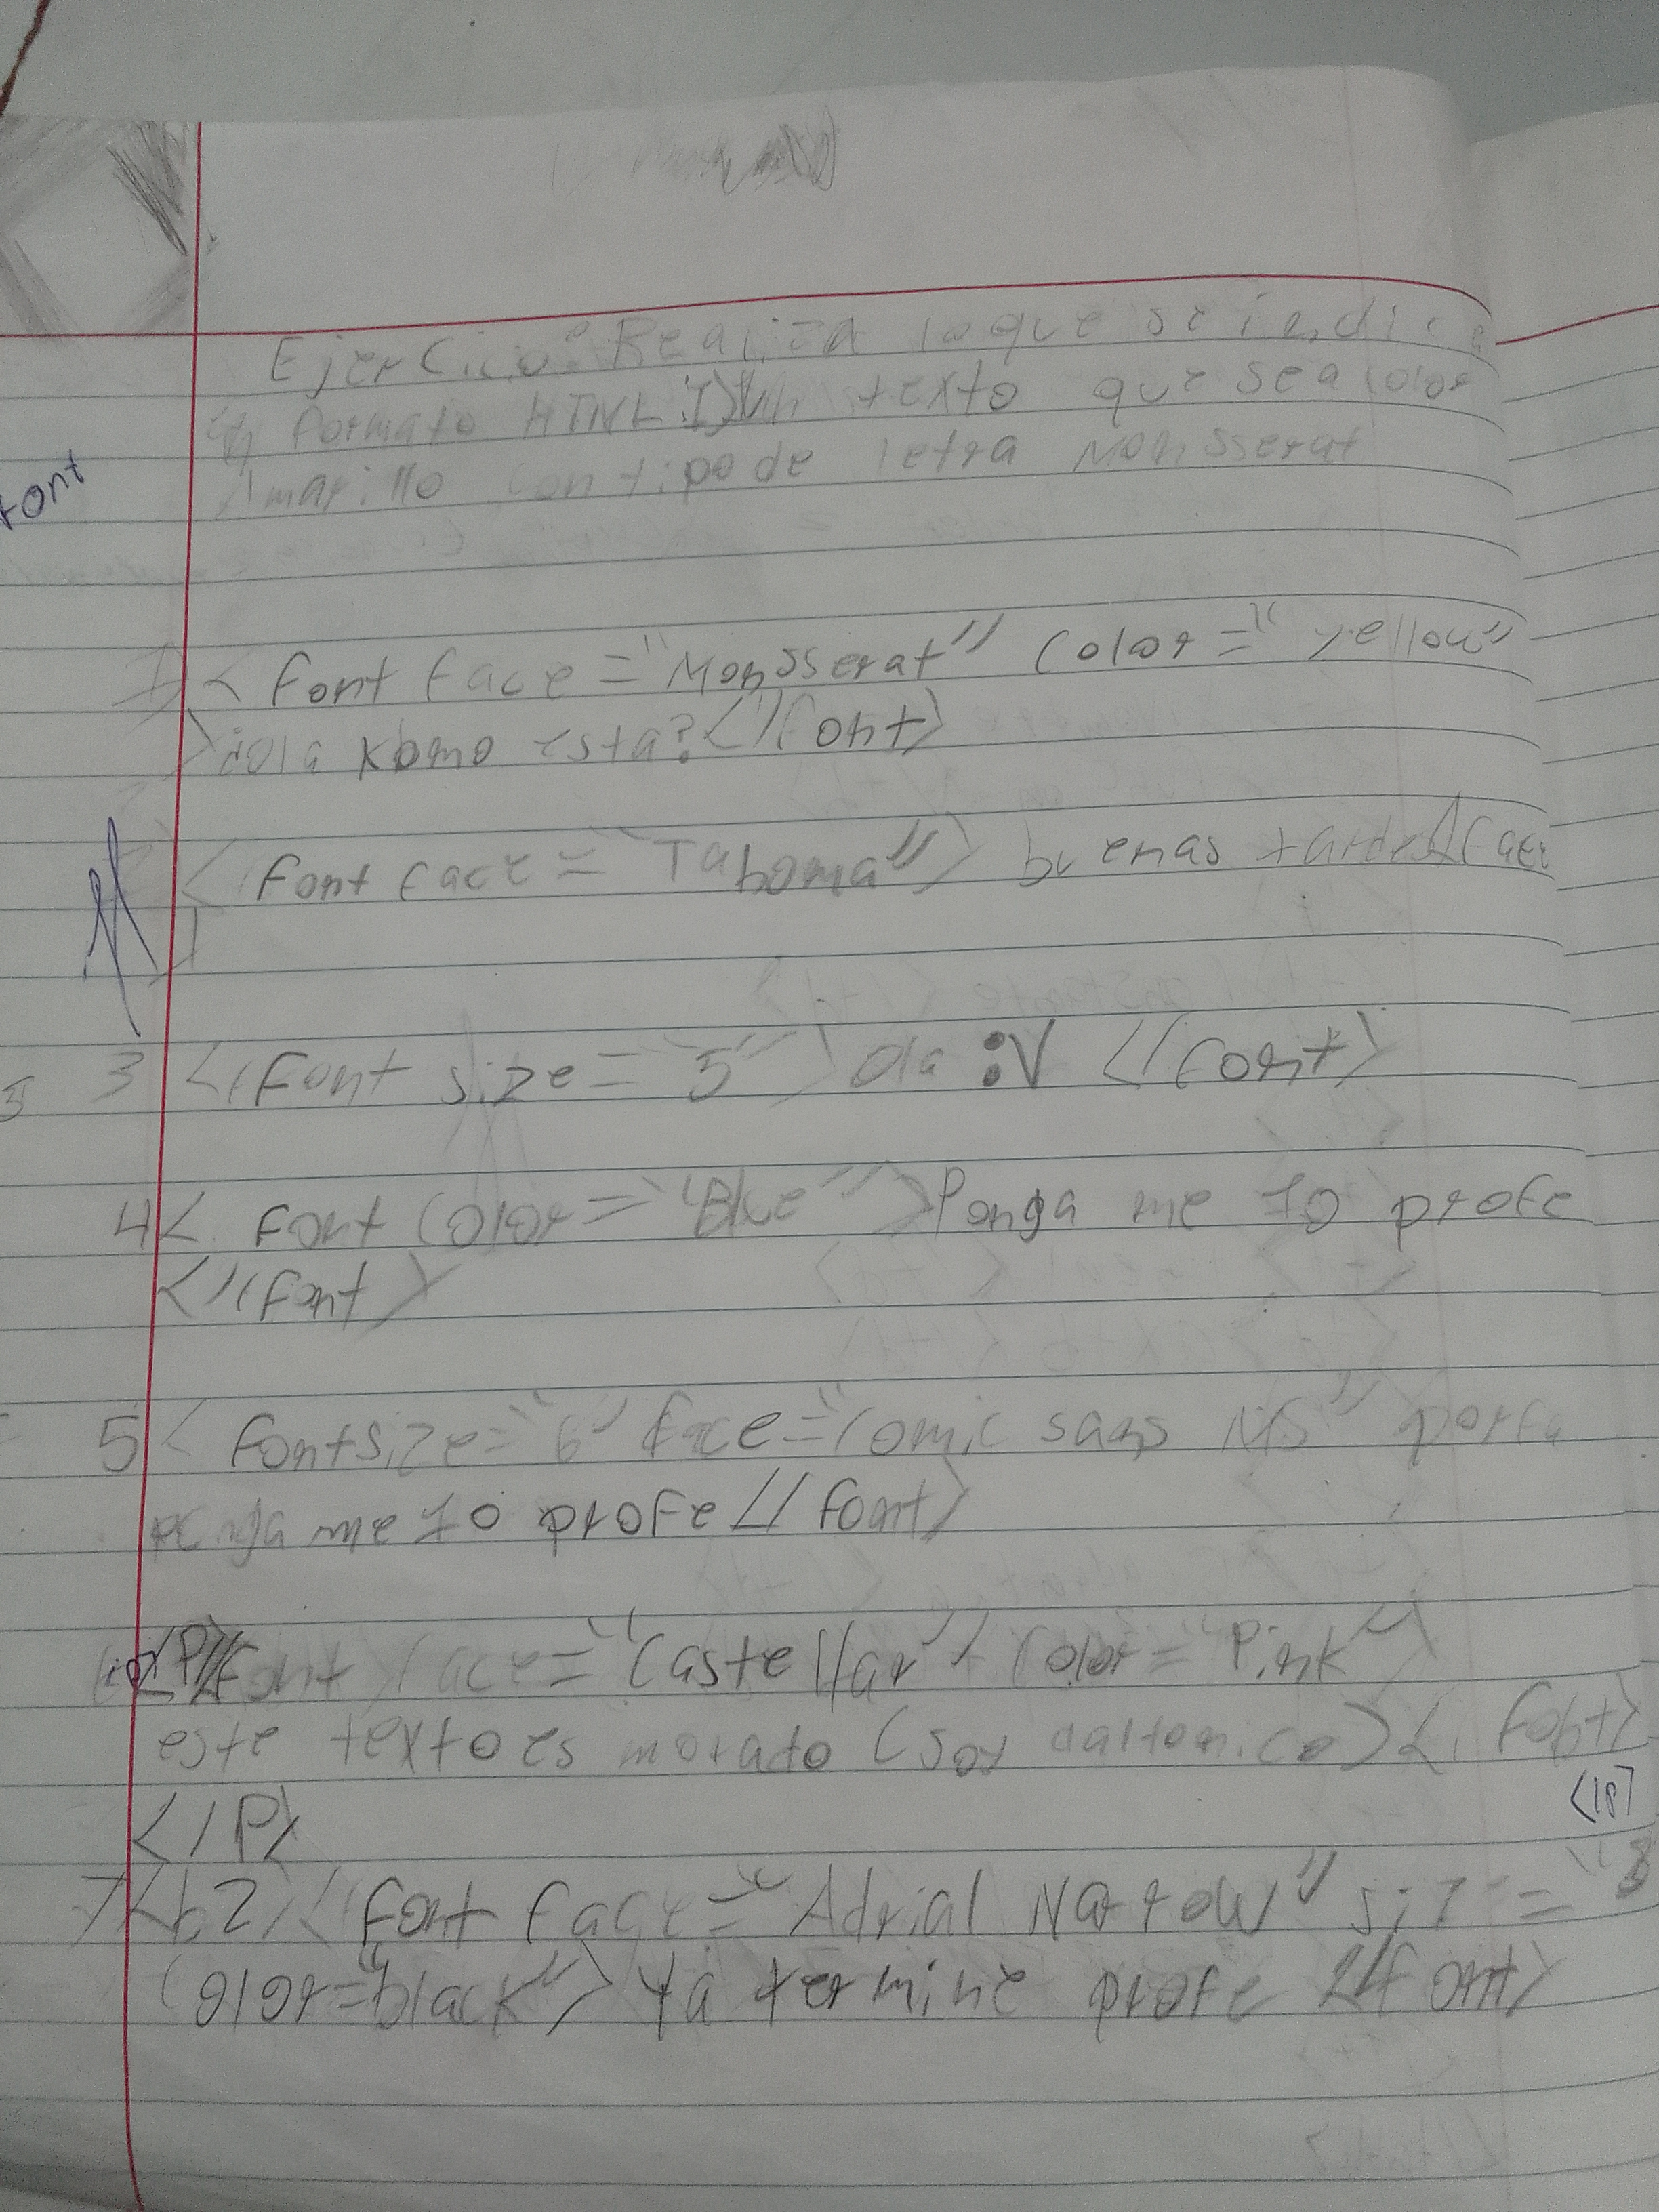 Ejercicio: Realiza lo que se indica
en formato HTML 1) Un texto que sea color
Amarillo con tipo de letra Monsserat
font
1) < font face = "Monsserat" Color = "yellow"
>¿ola komo esta?</font>
<font face = "Tahoma"> buenas tardes
3 <font size = "5"> Ola :V </font>
5
4 < font Color = "Blue" >Ponga me 10 profe
</font>
5 < font size = "6" face = "Comic sans MS" porfa
ponga me 10 profe </font>
<P><font face = "Castellar" Color = "Pink">
este texto es morato (soy daltonico) </font>
</P>
7 <b2> <font face = "Adrial Narrow" siz = "8
Color="black"> Ya termine profe </font>